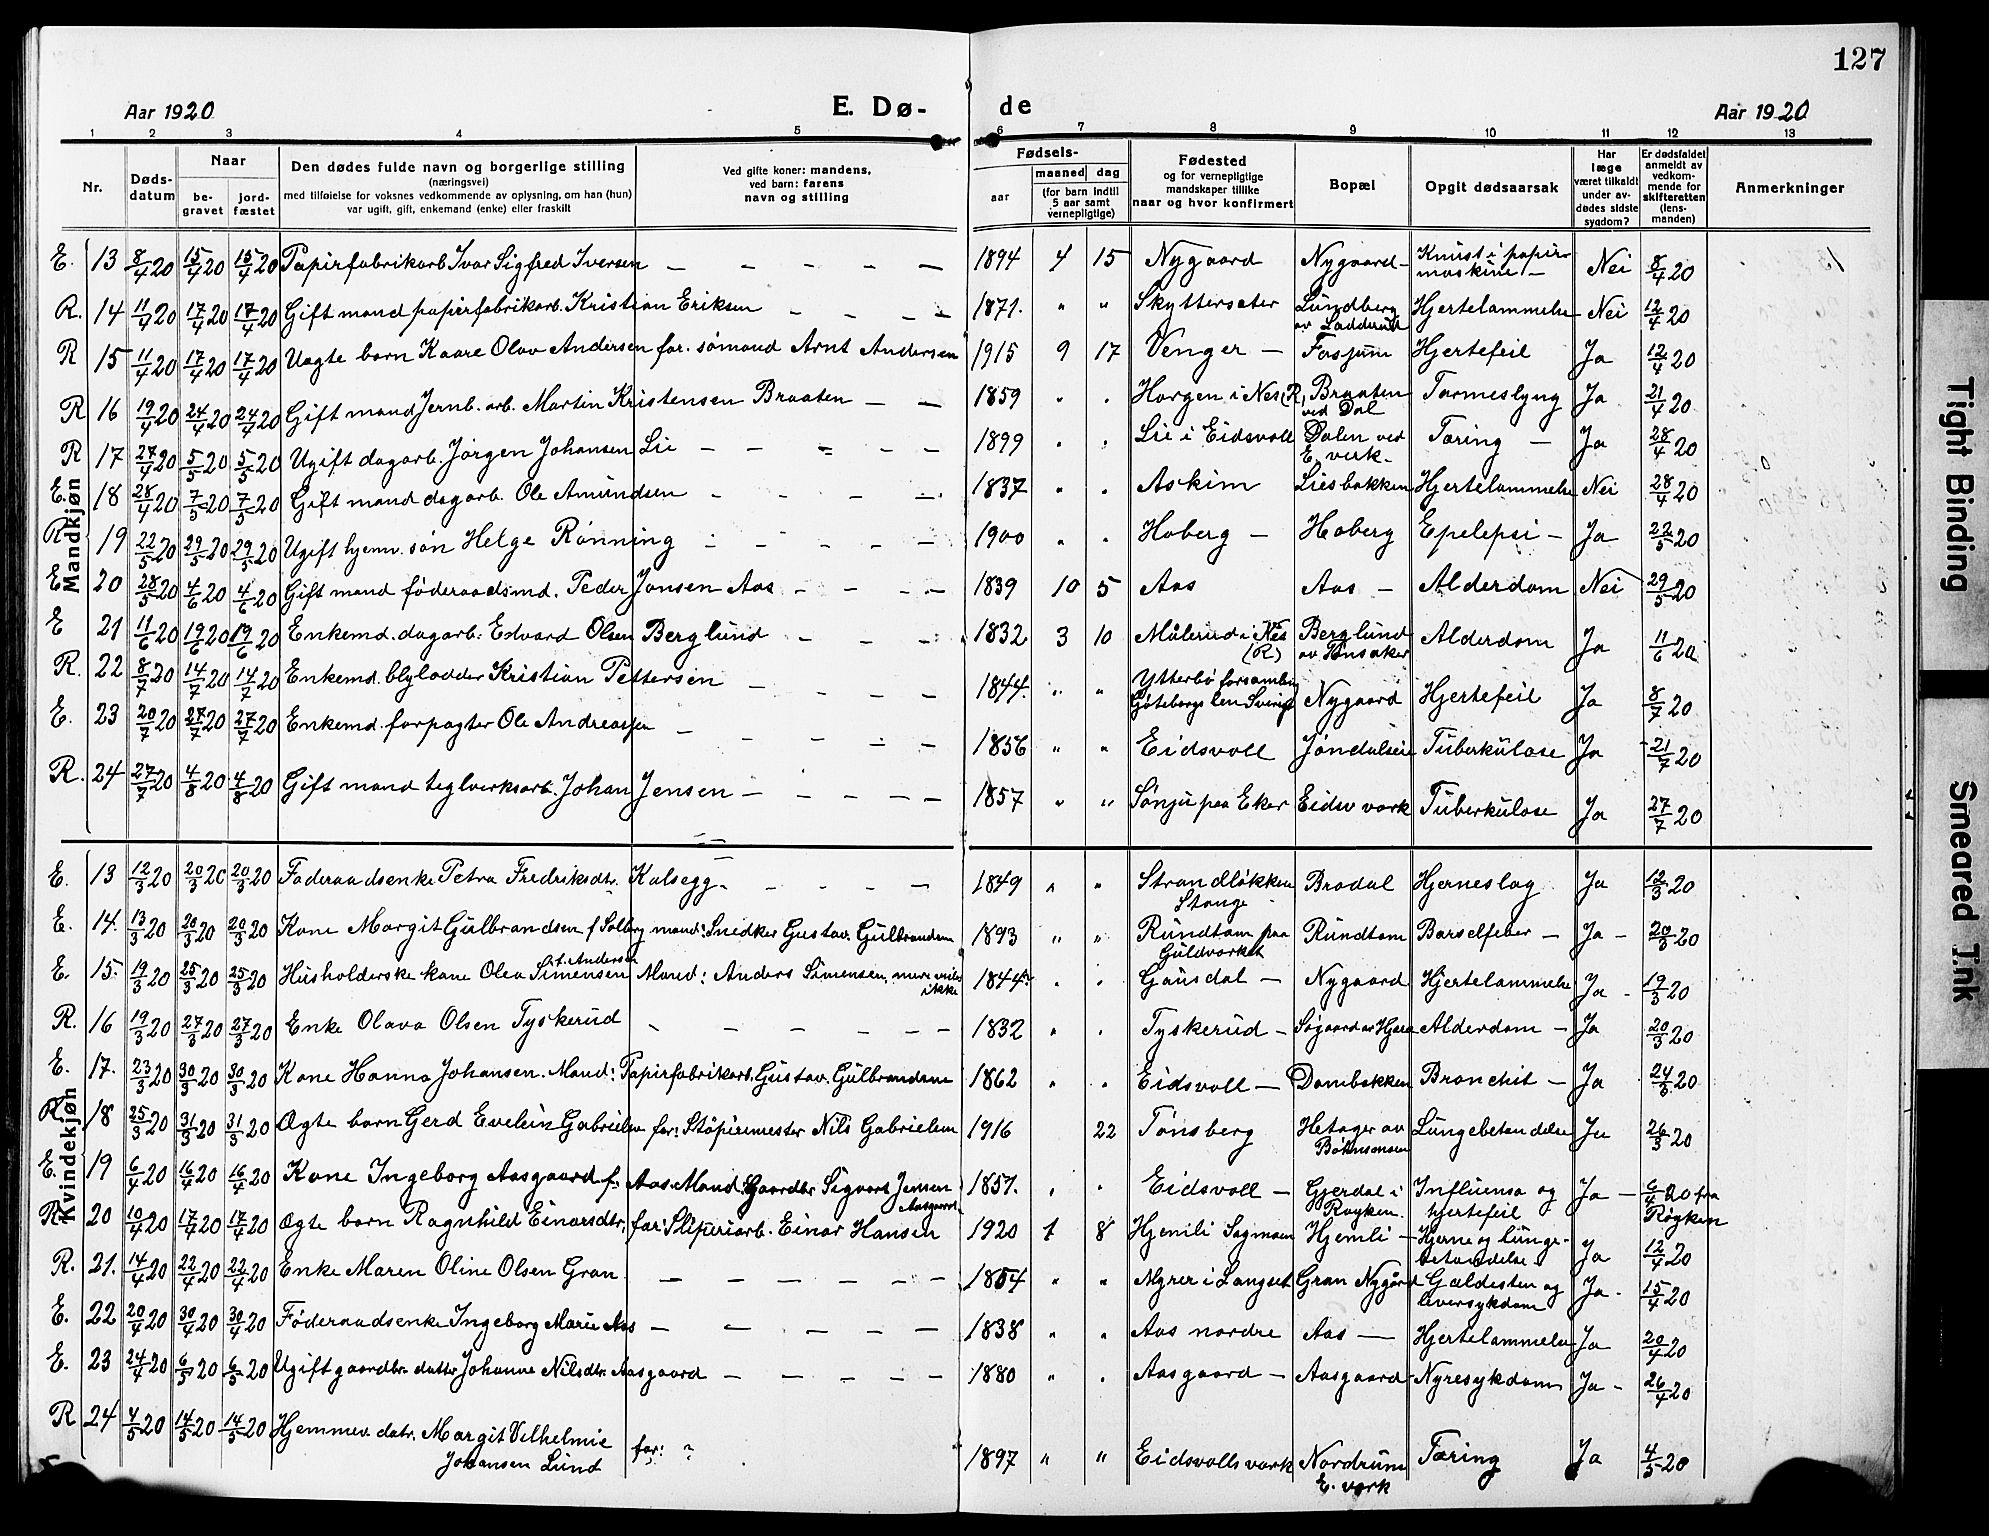 127
Aar 1920 E. Dø- de Aar 1920
1 2 3 4 5 6 7 8 9 10 11 12 13
Nr. Døds-datum Naar be-gravet jord-fæstet Den dødes fulde navn og borgerlige stilling (næringsvei) med tilføielse for voksnes vedkommende av oplysning, om han (hun) var ugift, gift, enkemand (enke) eller fraskilt Ved gifte koner: mandens, ved barn: farens navn og stilling Fødsels- aar maaned dag (for barn indtil 5 aar samt vernepligtige) Fødested og for vernepligtige mandskaper tillike naar og hvor konfirmert Bopæl Opgit dødsaarsak Har læge været tilkaldt under av-dødes sidste sygdom? Er dødsfaldet anmeldt av vedkom-mende for skifteretten (lens-manden) Anmerkninger
Mandkjøn
E. 13 8/4 20 15/4 20 15/4 20 Papirfabrikarb Ivar Sigfred Iversen – – – – – 1894 4 15 Nygaard Nygaard – Knust i papir-maskine – Nei 8/4 20
R. 14 11/4 20 17/4 20 17/4 20 Gift mand papirfabrikarb. Kristian Eriksen – – – 1871. " " Skyttersæter Lundberg av Ladderud Hjertelammelse Nei 12/4 20
R 15 11/4 20 17/4 20 17/4 20 Uægte barn Kaare Olav Andersen far. sømand Arnt Andersen 1915 9 17 Venger – Fosjum Hjertefeil Ja 12/4 20
R 16 19/4 20 24/4 20 24/4 20 Gift mand Jernb. arb. Martin Kristensen Braaten – – 1859 " " Horgen i Nes (R) Braaten ved Dal Tarmeslyng Ja 21/4 20
R 17 27/4 20 5/5 20 5/5 20 Ugift dagarb. Jørgen Johansen Lie – – – – – 1899 " " Lie i Eidsvoll Dalen ved E. verk – Tæring – Ja 28/4 20
E. 18 28/4 20 7/5 20 7/5 20 Gift mand dagarb. Ole Amundsen – – – – 1837 " " Askim Liesbakken Hjertelammelse Nei 28/4 20
R 19 22/5 20 29/5 20 29/5 20 Ugift hjemv. søn Helge Rønning – – – – – 1900 " " Hoberg – Hoberg Epelepsi – Ja 22/5 20
E 20 28/5 20 4/6 20 4/6 20 Gift mand føderaadsmd. Peder Jonsen Aas – – – – 1839 10 5 Aas Aas – Alderdom Nei 29/5 20
E 21 11/6 20 19/6 20 19/6 20 Enkemd. dagarb. Edvard Olsen Berglund – – – 1832 3 10 Målerud i Nes (R) Berglund av Hønsaker Alderdom Ja 11/6 20
R. 22 8/7 20 14/7 20 14/7 20 Enkemd. blylodder Kristian Pettersen – – – – 1844. " " Ytterbö forsamling Göteborgs len Sverige Nygaard Hjertefeil Ja 8/7 20
E. 23 20/7 20 27/7 20 27/7 20 Enkemd. forpagter Ole Andreassen – – – – – 1856 " " Eidsvoll Jøndalseie Tuberkulose Ja 21/7 20
R. 24 27/7 20 4/8 20 4/8 20 Gift mand teglverksarb. Johan Jensen – – – – – 1857 " " Sønju paa Eker Eidsv værk Tuberkulose Ja 27/7 20
Kvindekjøn
E. 13 12/3 20 20/3 20 20/3 20 Føderaadsenke Petra Fredriksdtr. Kalsegg – – – – – 1849 " " Strandløkken Stange Brodal Hjerneslag Ja 12/3 20
E. 14. 13/3 20 20/3 20 20/3 20 Kone Margit Gulbrandsen f Solberg mand: Snedker Gustav Gulbrandsen 1893 " " Rundtom paa Guldverket Rundtom Barselfeber – Ja – 20/3 20
E. 15. 19/3 20 25/3 20 25/3 20 Husholderske kone Olea Simensen f. Andersen Mand: Anders Simensen, mere vides ikke 1844. " " Gausdal – Nygaard Hjertelammelse Ja – 19/3 20
R. 16 19/3 20 27/3 20 27/3 20 Enke Olava Olsen Tyskerud – – – – – – 1832 " " Tyskerud – Søgaard av Hjera Alderdom – Ja 20/3 20
E. 17. 23/3 20 30/3 20 30/3 20 Kone Hanna Johansen. Mand: Papirfabrikarb. Gustav. Gulbrandsen 1862 " " Eidsvoll – Dambakken Bronchit – Ja 24/3 20
R. 18 25/3 20 31/3 20 31/3 20 Ægte barn Gerd Evelin Gabrielsen far: Støperimester Nils Gabrielsen 1916 22 Tønsberg Hetager av Lungebetændelse Ja 26/3 20
E. 19 6/4 20 16/4 20 16/4 20 Kone Ingeborg Aasgaard f. Aas. Mand: Gaardbr Sigvart Jensen Aasgaard 1857. " " Eidsvoll – Gjerdal i Røyken. Influensa og hjertefeil Ja – 6/4 20 fra Røyken
R. 20 10/4 20 17/4 20 17/4 20 Ægte barn Ragnhild Einarsdtr. far: Sliperiarb. Einar Hansen 1920 1 8 Hjemli Sagmoen Hjemli – Hjerne og lunge-betændelse Ja 12/4 20
R. 21. 14/4 20 22/4 20 22/4 20 Enke Maren Oline Olsen Gran – – – – – – 1854 " " Myrer i Langset Gran Nygård Galdesten og leversykdom Ja – 15/4 20
E. 22 20/4 20 30/4 20 30/4 20 Føderaadsenke Ingeborg Marie Aas – – – – – 1838 " " Aas nordre Aas – Hjertelammelse Ja 20/4 20
E. 23 24/4 20 6/5 20 6/5 20 Ugift gaardbr. datter Johanne Nilsdtr. Aasgaard – – – – – 1880 " " Aasgaard – Aasgaard – Nyresykdom Ja – 26/4 20
R 24 4/5 20 14/5 20 14/5 20 Hjemmev. datr. Margit Vilhelmie Johansen Lund far: ? 1897 " " Eidsvolls værk Nordrum E. værk Tæring Ja 4/5 20
Tight Binding
Smeared Ink